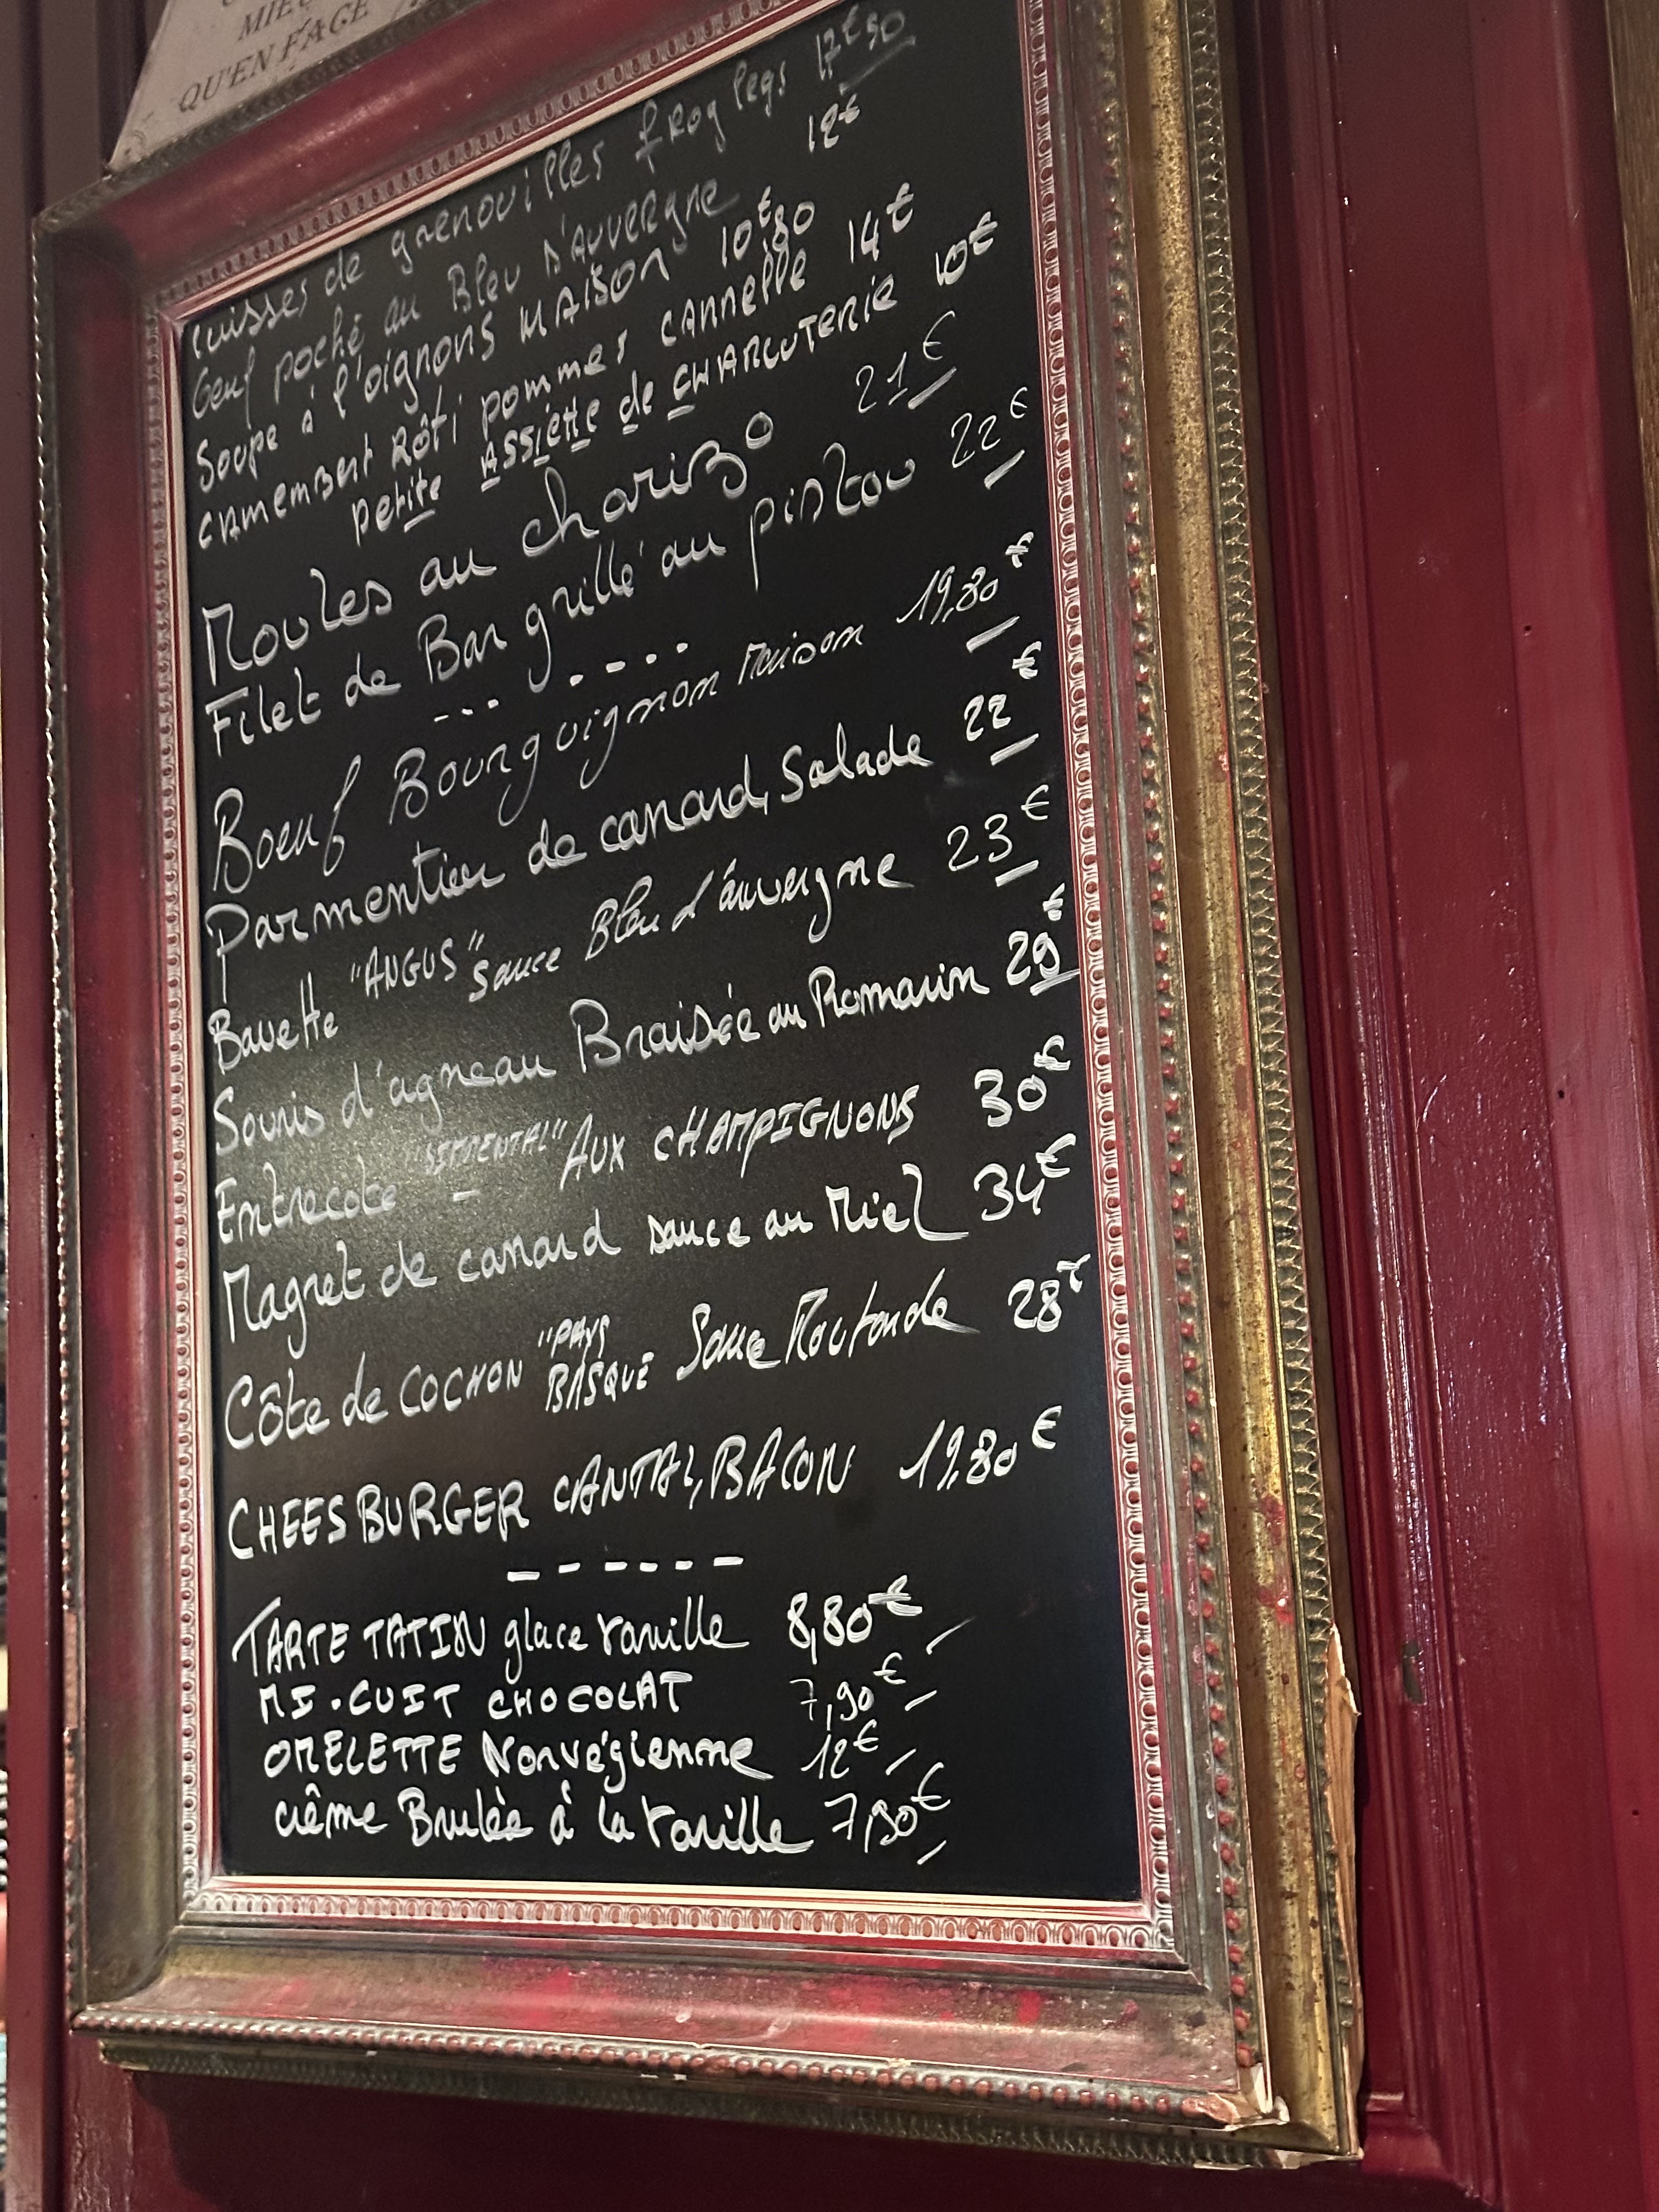 MIEU
QU'EN FACE
Cuisses de grenouilles frog legs 17€50
Oeuf poché au Bleu D'AUVERgne 12€
Soupe à l'oignons MAISON 10€80
CAMEMBERT RÔTI pommes CANNELLE 14€
petite ASSIETTE de CHARCUTERIE 10€
Moules au chorizo 21€
Filet de Bar grillé au pistou 22€
Boeuf Bourguignon Maison 19,80€
Parmentier de canard, Salade 22€
Bavette "ANGUS" sauce Bleu d'auvergne 23€
Souris d'agneau Braisée au Romarin 29€
Entrecote "SIMMENTAL" AUX CHAMPIGNONS 30€
Magret de canard sauce au Miel 34€
Côte de COCHON "PAYS BASQUE Sauce Moutarde 28€
CHEESBURGER CANTAL, BACON 19,80€
TARTE TATIN glace vanille 8,80€
MI.CUIT CHOCOLAT 7,90€
OMELETTE Norvégienne 12€
crême Brulée à la vanille 7,90€